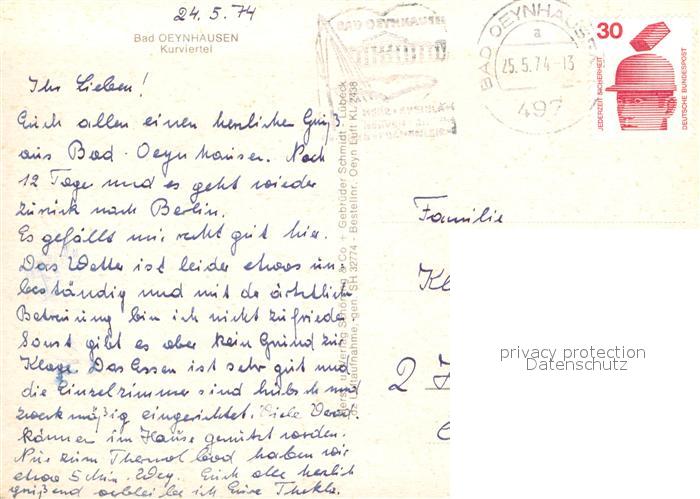 24.5.74
Bad OEYNHAUSEN
Kurviertel
Ihr Lieben!
Euch allen einen herzlichen Gruß
aus Bad-Oeynhausen. Noch
12 Tage und es geht wieder
zurück nach Berlin.
Es gefällt mir recht gut hier.
Das Wetter ist leider etwas un-
beständig und mit der ärztlichen
Betreuung bin ich nicht zufrieden.
Sonst gibt es aber kein Grund zur
Klage. Das Essen ist sehr gut und
die Einzelzimmer sind hübsch und
zweckmäßig eingerichtet. Viele
können im Hause genutzt werden.
Nur zum Thermalbad haben wir
etwa 5 Min. Weg. Euch alle herzlich
grüßend verbleibe ich Eure Thekla.
Verlag Schöning & Co + Gebrüder Schmidt · Lübeck
Luftaufnahme, gen. SH 32774 - Bestellnr. Oeyn Luft KL 2438
BAD OEYNHAUSEN
BAD OEYNHAUSEN
a
25.5.74-13
497
30
JEDERZEIT SICHERHEIT
DEUTSCHE BUNDESPOST
Familie
Kl
2
privacy protection
Datenschutz